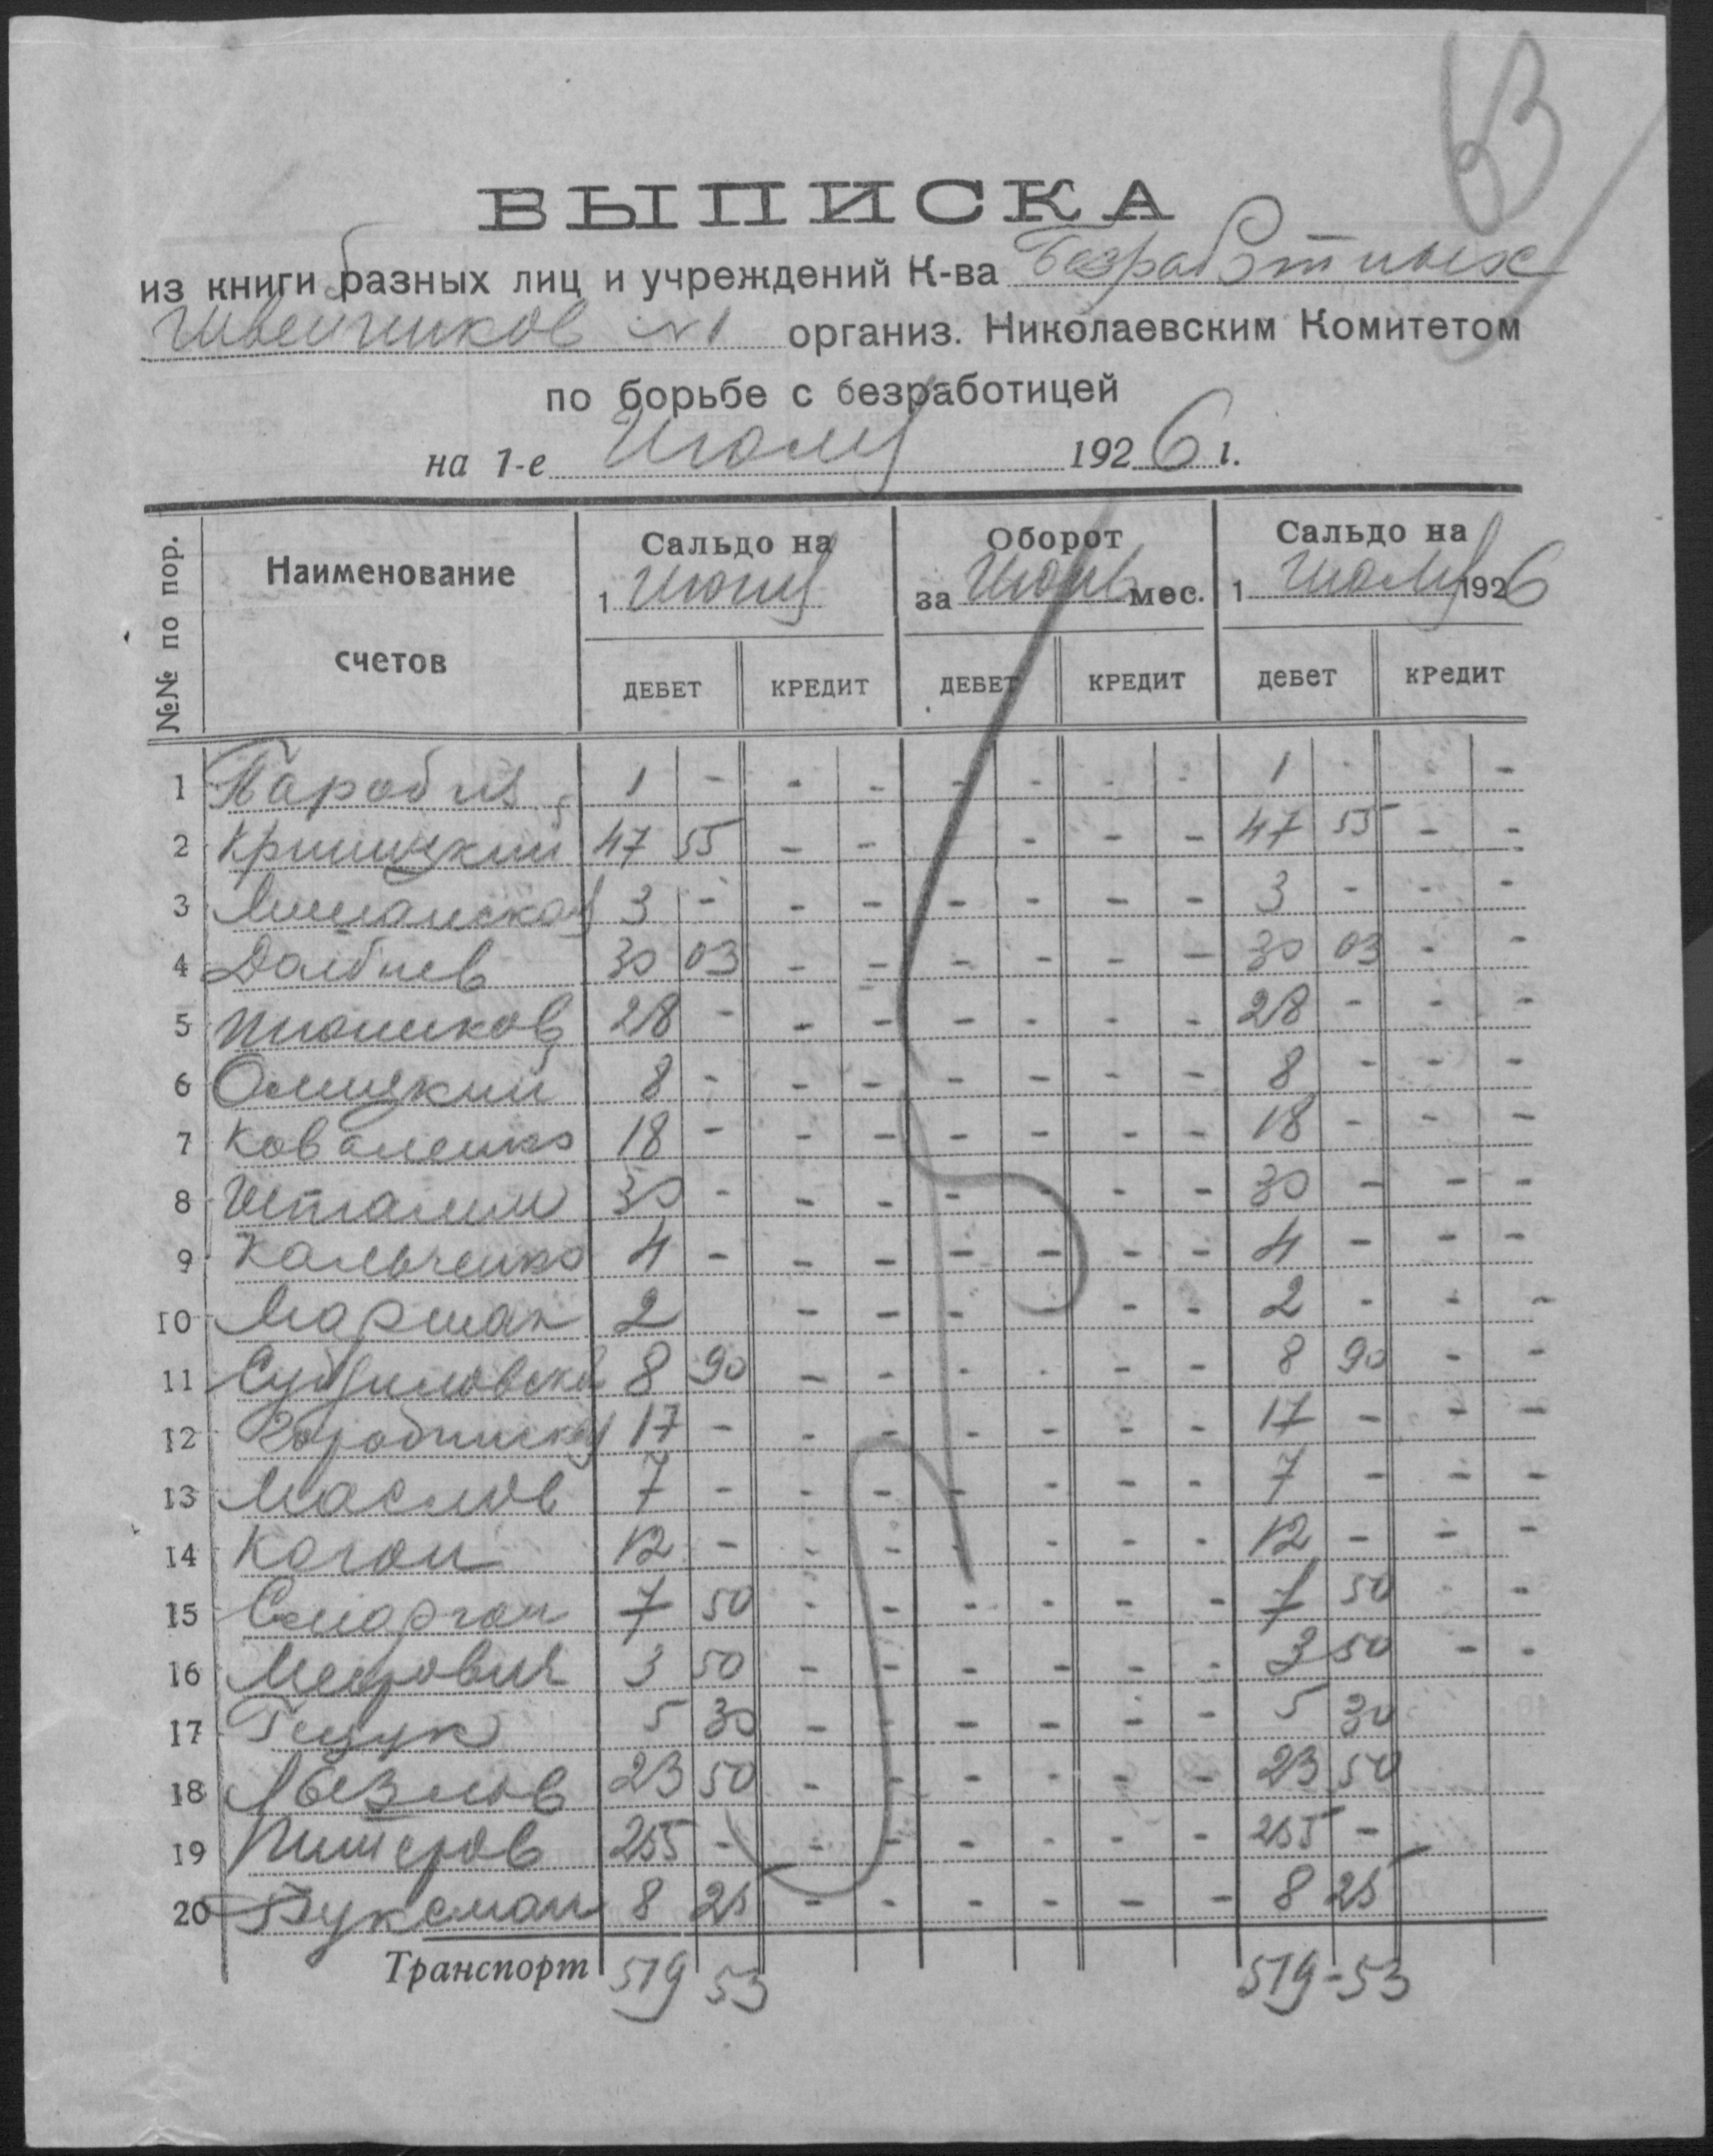 63
ВЫПИСКА
из книги разных лиц и учреждений К-ва безработных
Швейников №1 организ. Николаевским Комитетом
по борьбе с безработицей
на 1-е Июля 1926 г.
№№ по пор. Наименование счетов Сальдо на 1 Июня Оборот за Июнь мес. Сальдо на 1 Июля 1926
ДЕБЕТ КРЕДИТ ДЕБЕТ КРЕДИТ дебет кредит
1 1 - - - - - - - 1 - - -
2 Криницкий 47 55 - - - - - 47 55 - -
3 3 - - - - - - - 3 - - -
4 30 03 - - - - - - 30 03 - -
5 28 - - - - - - - 28 - - -
6 Олицкий 8 - - - - - - - 8 - - -
7 Коваленко 18 - - - - - - - 18 - - -
8 30 - - - - - - - 30 - - -
9 Кальченко 4 - - - - - - - 4 - - -
10 Маршак 2 - - - - - 2 - - -
11 8 90 - - - - - - 8 90 - -
12 17 - - - - - - - 17 - - -
13 Маслов 7 - - - - - - - 7 - - -
14 Коган 12 - - - - - - - 12 - - -
15 Сморгон 7 50 - - - - - - 7 50 - -
16 3 50 - - - - - - 3 50 - -
17 5 30 - - - - - - 5 30
18 23 50 - - - - - - 23 50
19 255 - - - - - - - 255 -
20 Буксман 8 25 - - - - - - 8 25
Транспорт 519 53 519-53